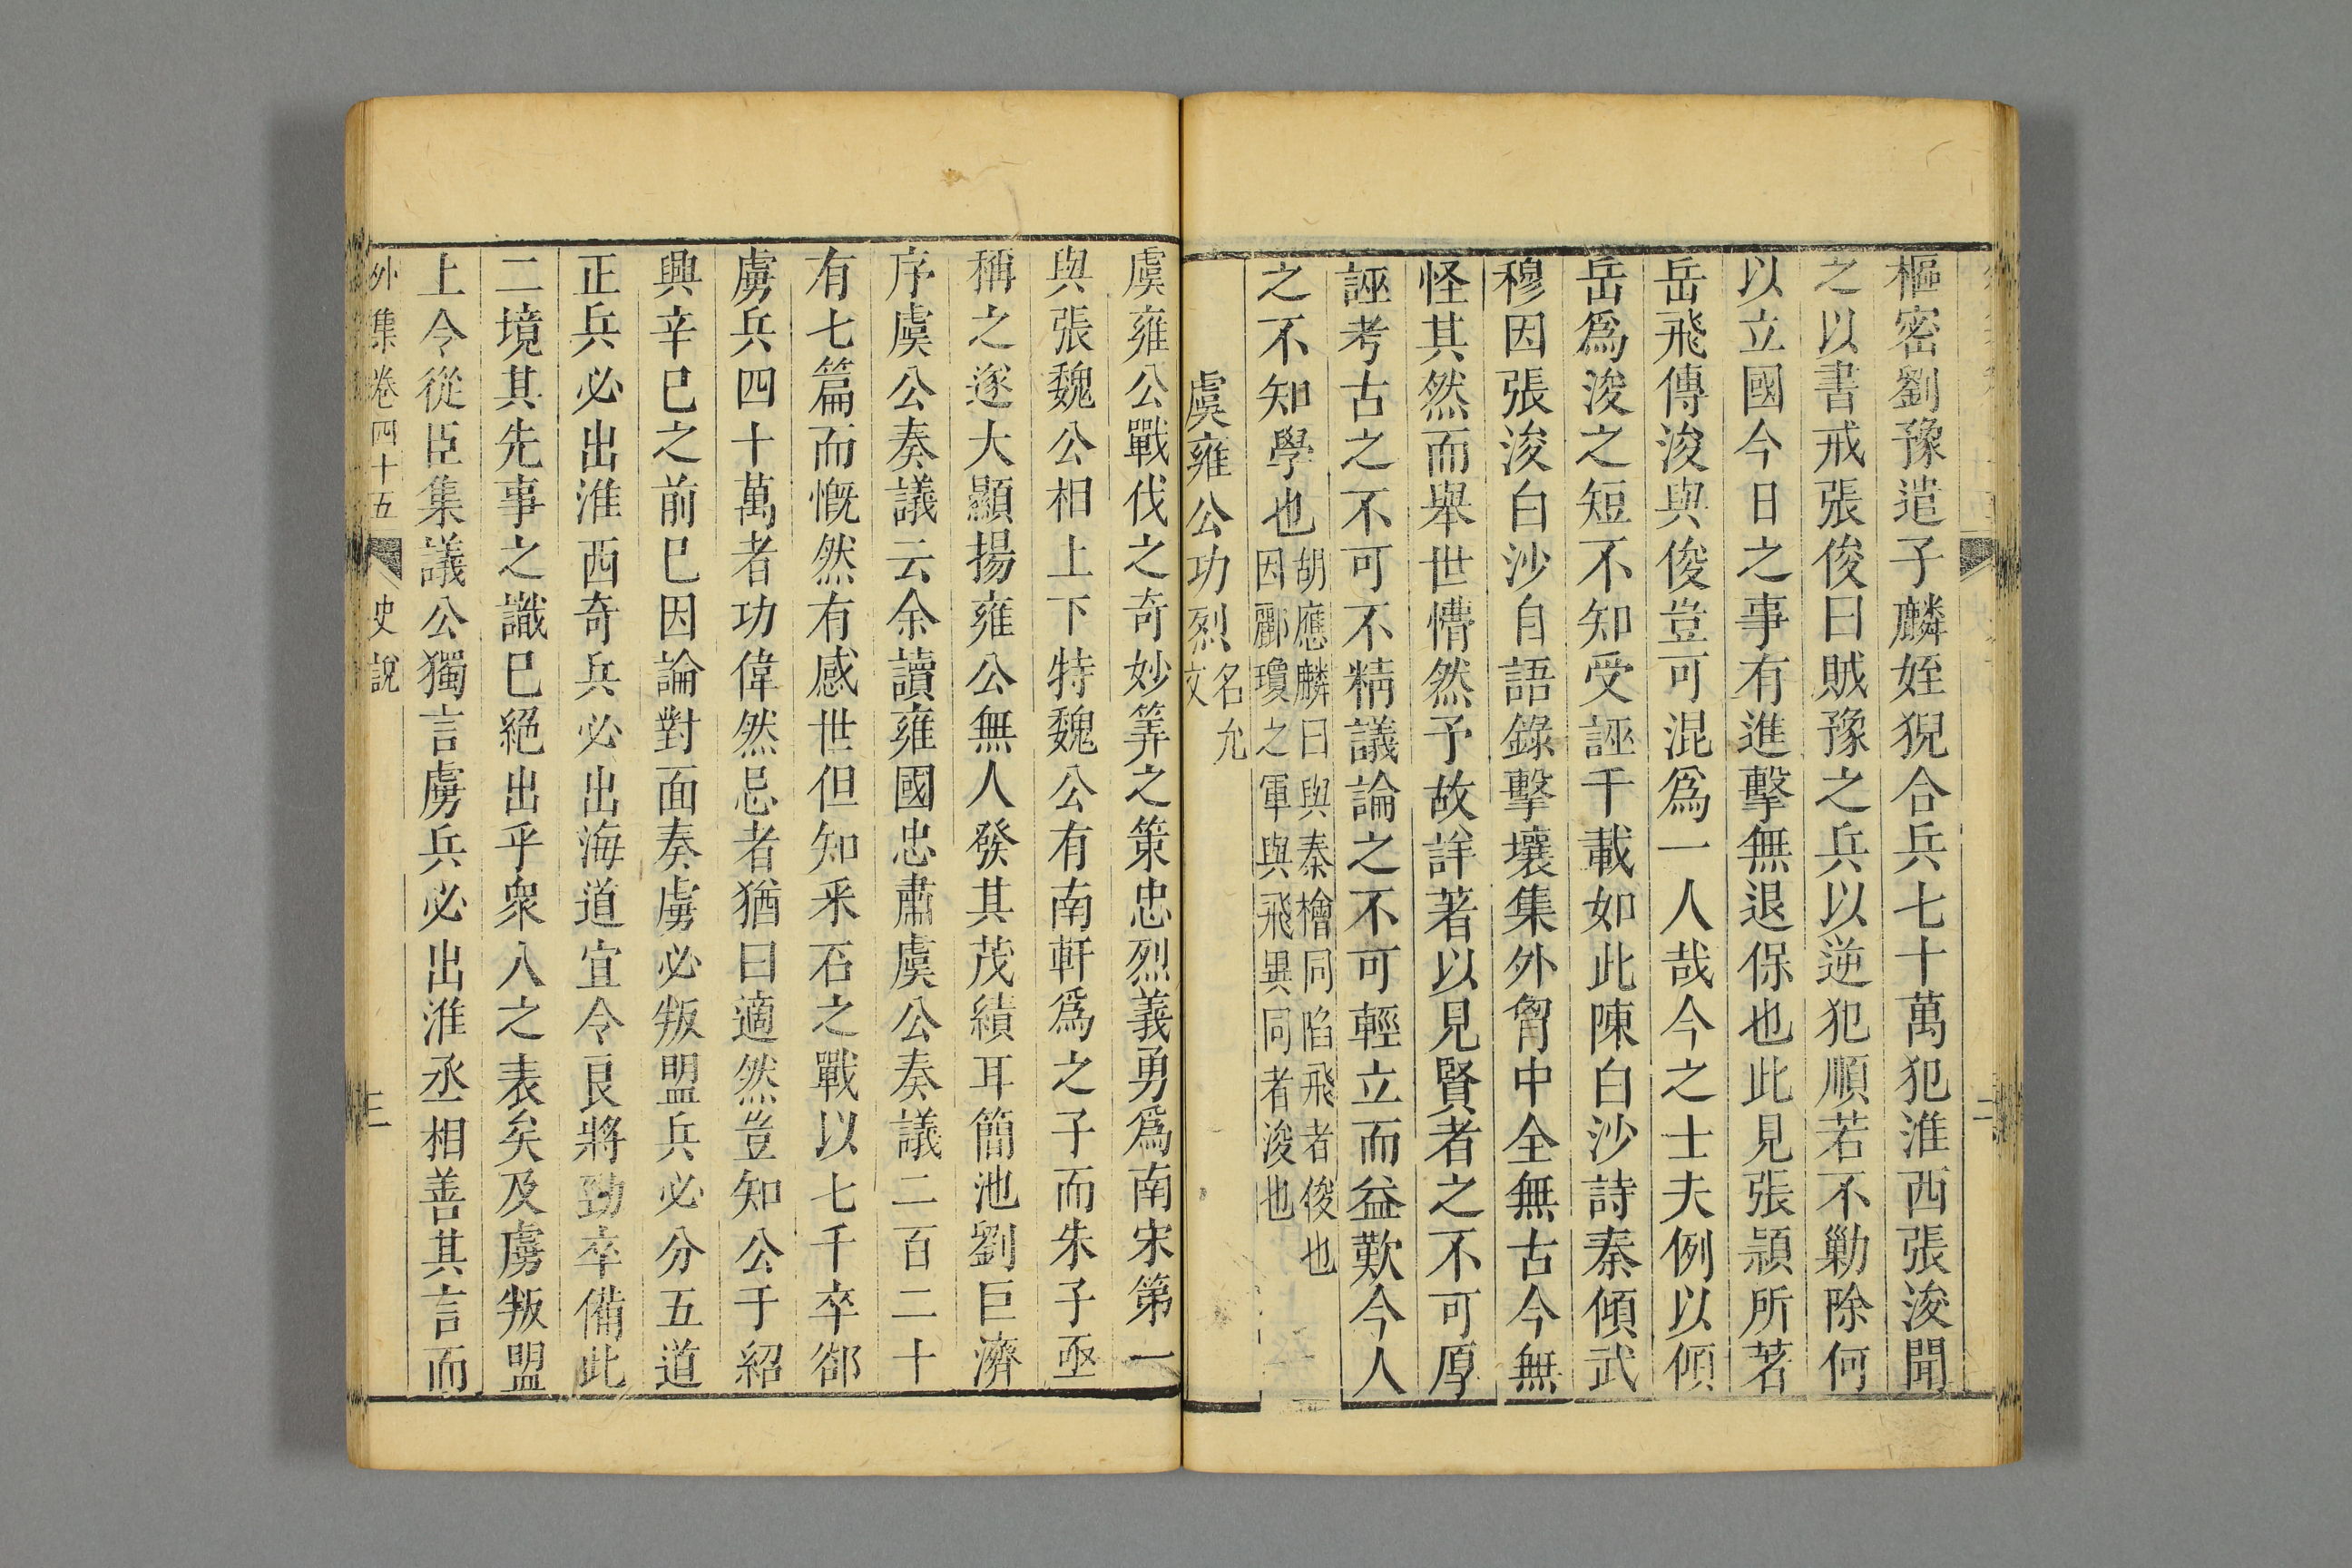 樞密劉豫遣子麟姪猊合兵七十萬犯淮西張浚聞
之以書戒張俊曰賊豫之兵以逆犯順若不勦除何
以立國今日之事有進擊無退保也此見張頴所著
岳飛傳浚與俊豈可混爲一人哉今之士夫例以傾
岳爲浚之短不知受誣千載如此陳白沙詩秦傾武
穆因張浚白沙自語錄擊壤集外胷中全無古今無
怪其然而舉世懵然予故詳著以見賢者之不可厚
誣考古之不可不精議論之不可輕立而益歎今人
之不知學也
胡應麟曰與秦檜同陷飛者俊也
因酈瓊之軍與飛異同者浚也
虞雍公功烈
名允
文
虞雍公戰伐之奇妙筭之策忠烈義勇爲南宋第一
與張魏公相上下特魏公有南軒爲之子而朱子亟
稱之遂大顯揚雍公無人發其茂績耳簡池劉巨濟
序虞公奏議云余讀雍國忠肅虞公奏議二百二十
有七篇而慨然有感世但知采石之戰以七千卒郤
虜兵四十萬者功偉然忌者猶曰適然豈知公于紹
興辛巳之前已因論對面奏虜必叛盟兵必分五道
正兵必出淮西奇兵必出海道宜令良將勁卒備此
二境其先事之識已絕出乎衆人之表矣及虜叛盟
上令從臣集議公獨言虜兵必出淮丞相善其言而
外集卷四十五
史說
三